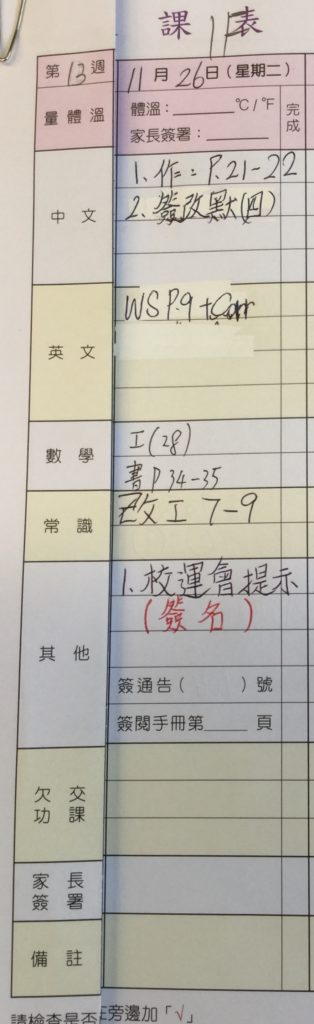 課表
第13週
11月26日(星期二)
量體溫
體溫：______℃/℉
家長簽署：______
完成
中文
1. 作：P.21-22
2. 簽改默(四)
英文
WS P.9 + Corr
數學
工(28)
書P 34-35
常識
改工 7-9
其他
1. 校運會提示
(簽名)
簽通告(　　)號
簽閱手冊第____頁
欠交功課
家長簽署
備註
請檢查是否
旁邊加「√」